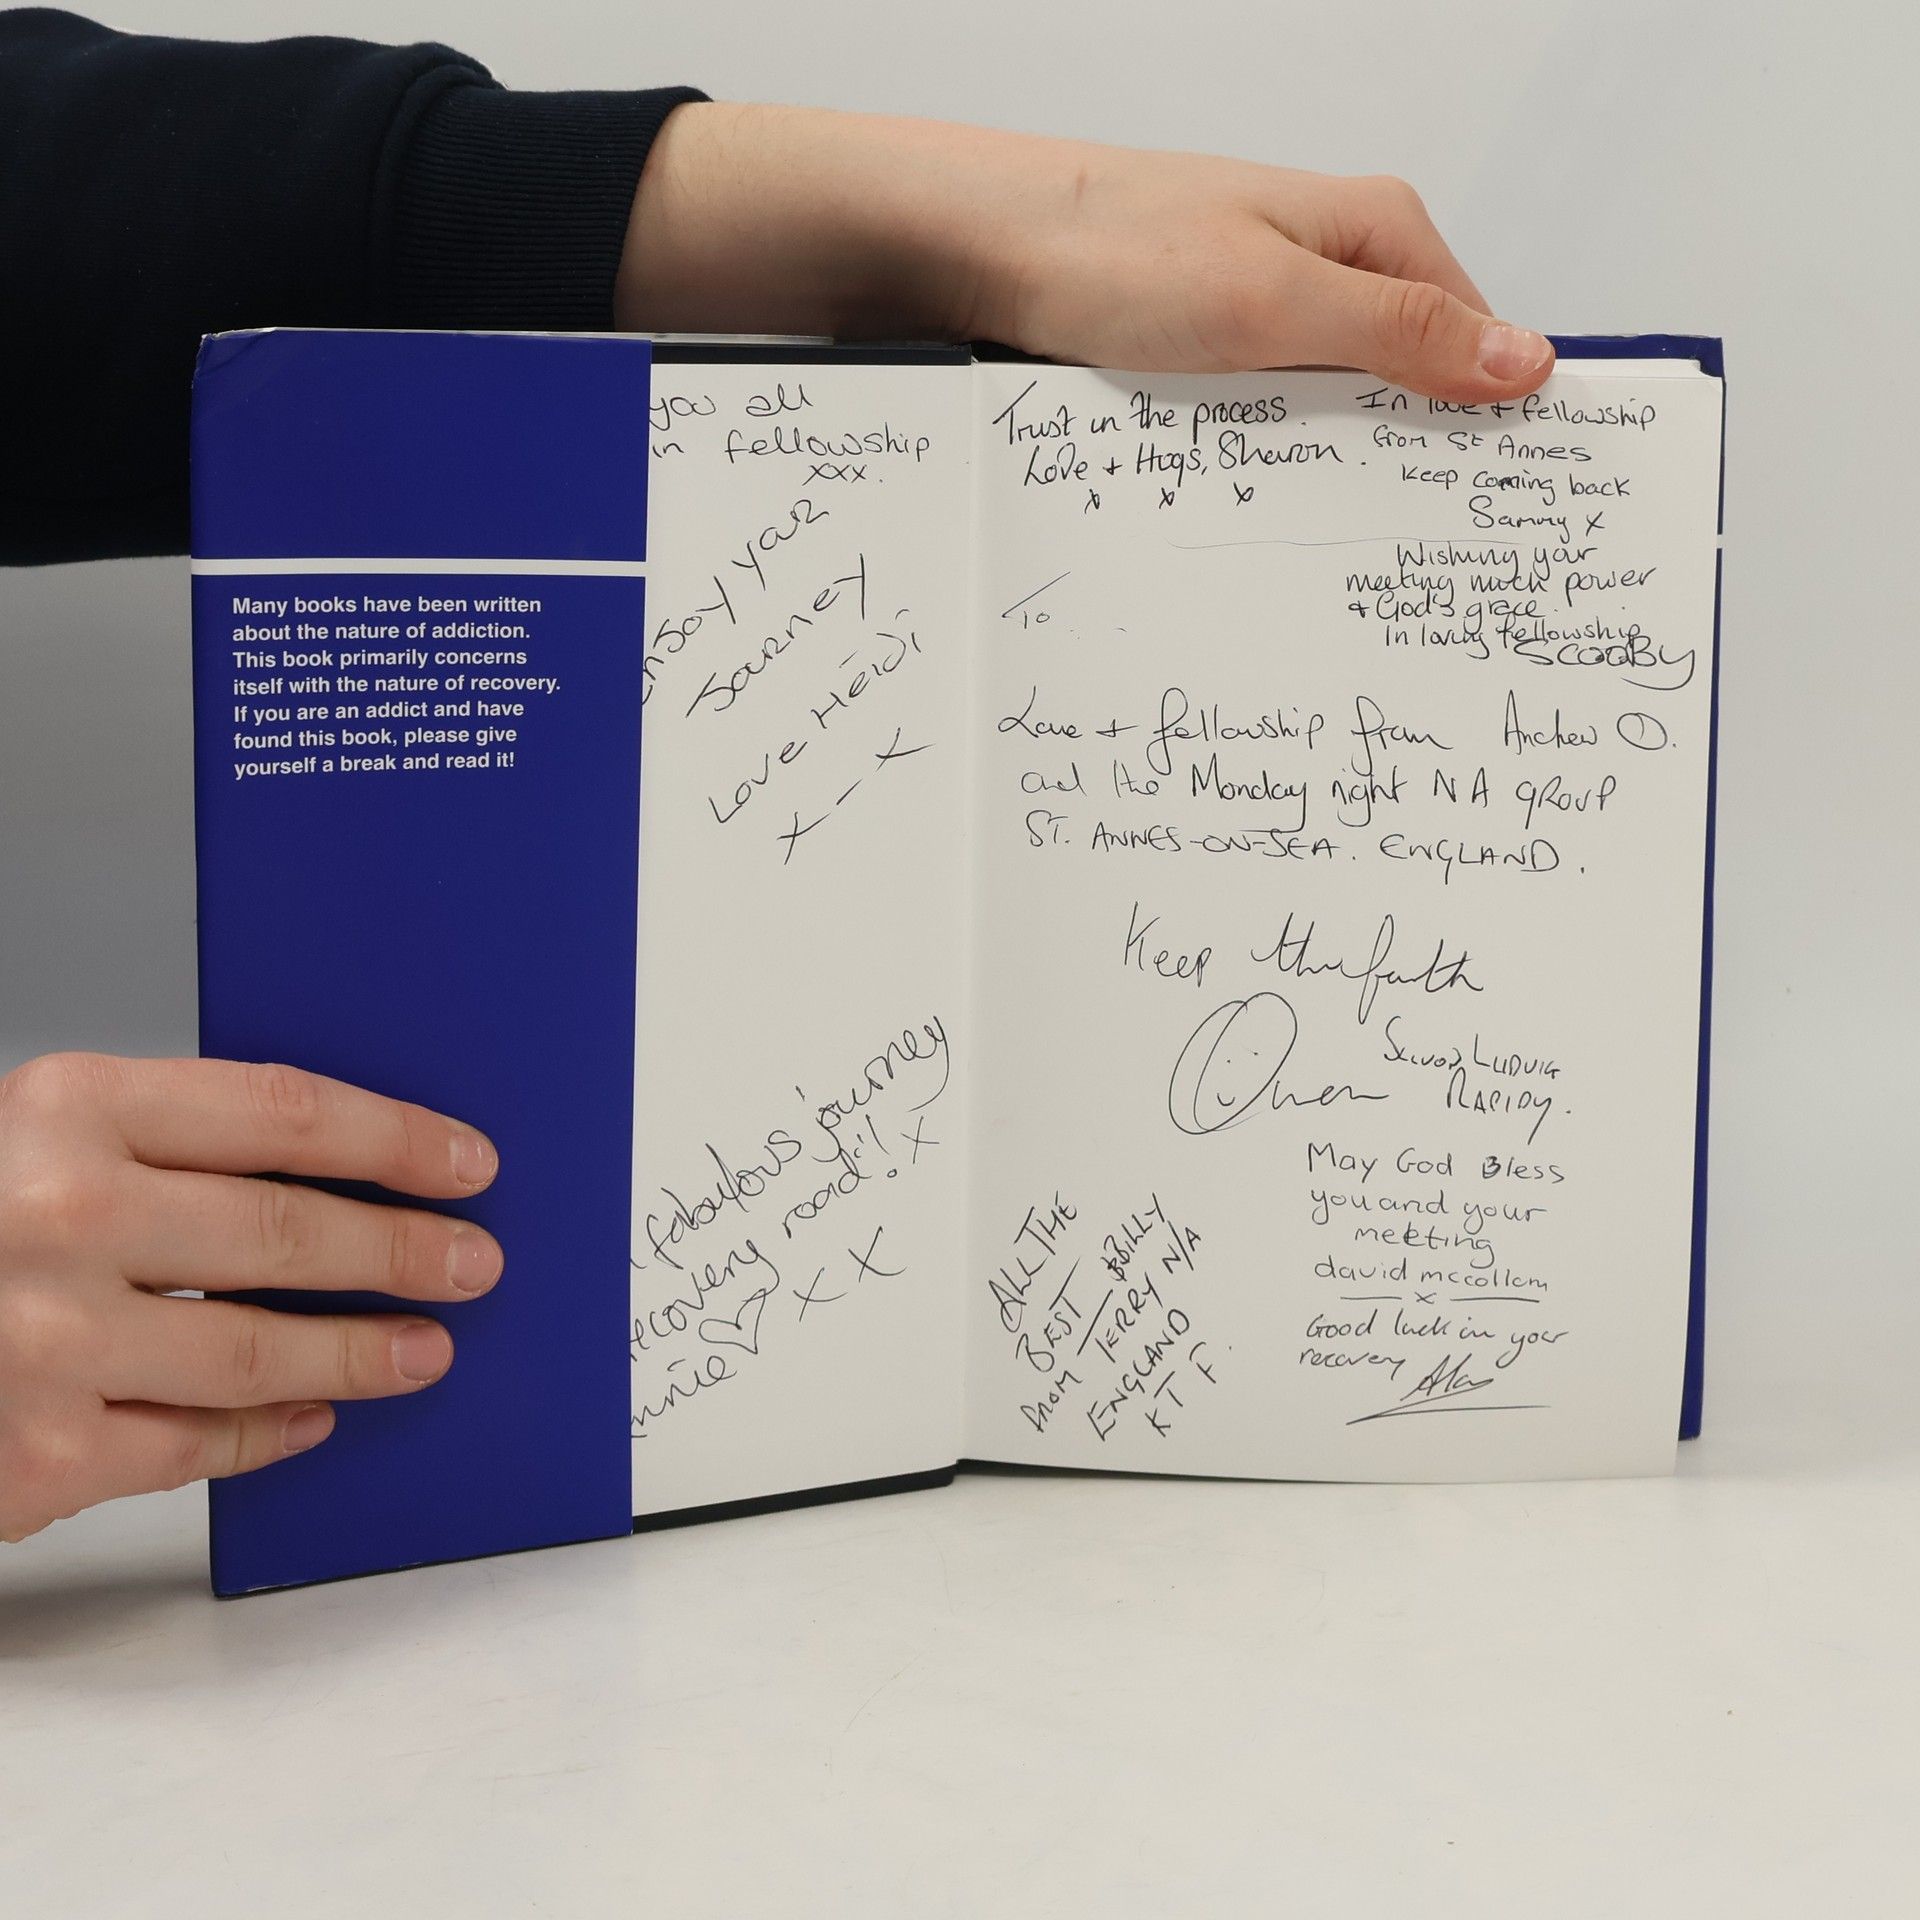 Many books have been written
about the nature of addiction.
This book primarily concerns
itself with the nature of recovery.
If you are an addict and have
found this book, please give
yourself a break and read it!
you all
in fellowship
xxx.
enjoy your
Journey
Love Heidi
x – x
fabulous journey
recovery road!! x
x x
Trust in the process.
Love + Hugs, Sharon.
x x x
In love + fellowship
from St Annes
Keep coming back
Sammy x
To
Wishing your
meeting much power
& God's grace.
In loving fellowship
SCOOBY
Love + fellowship from Andrew O.
and the Monday night NA GROUP
ST. ANNES-ON-SEA. ENGLAND.
Keep the faith
Owen
LUDVIG
May God Bless
you and your
meeting
david mccollam
x
Good luck in your
recovery Alan
ALL THE
BEST
FROM TERRY BILLY
N/A
ENGLAND
K T F.